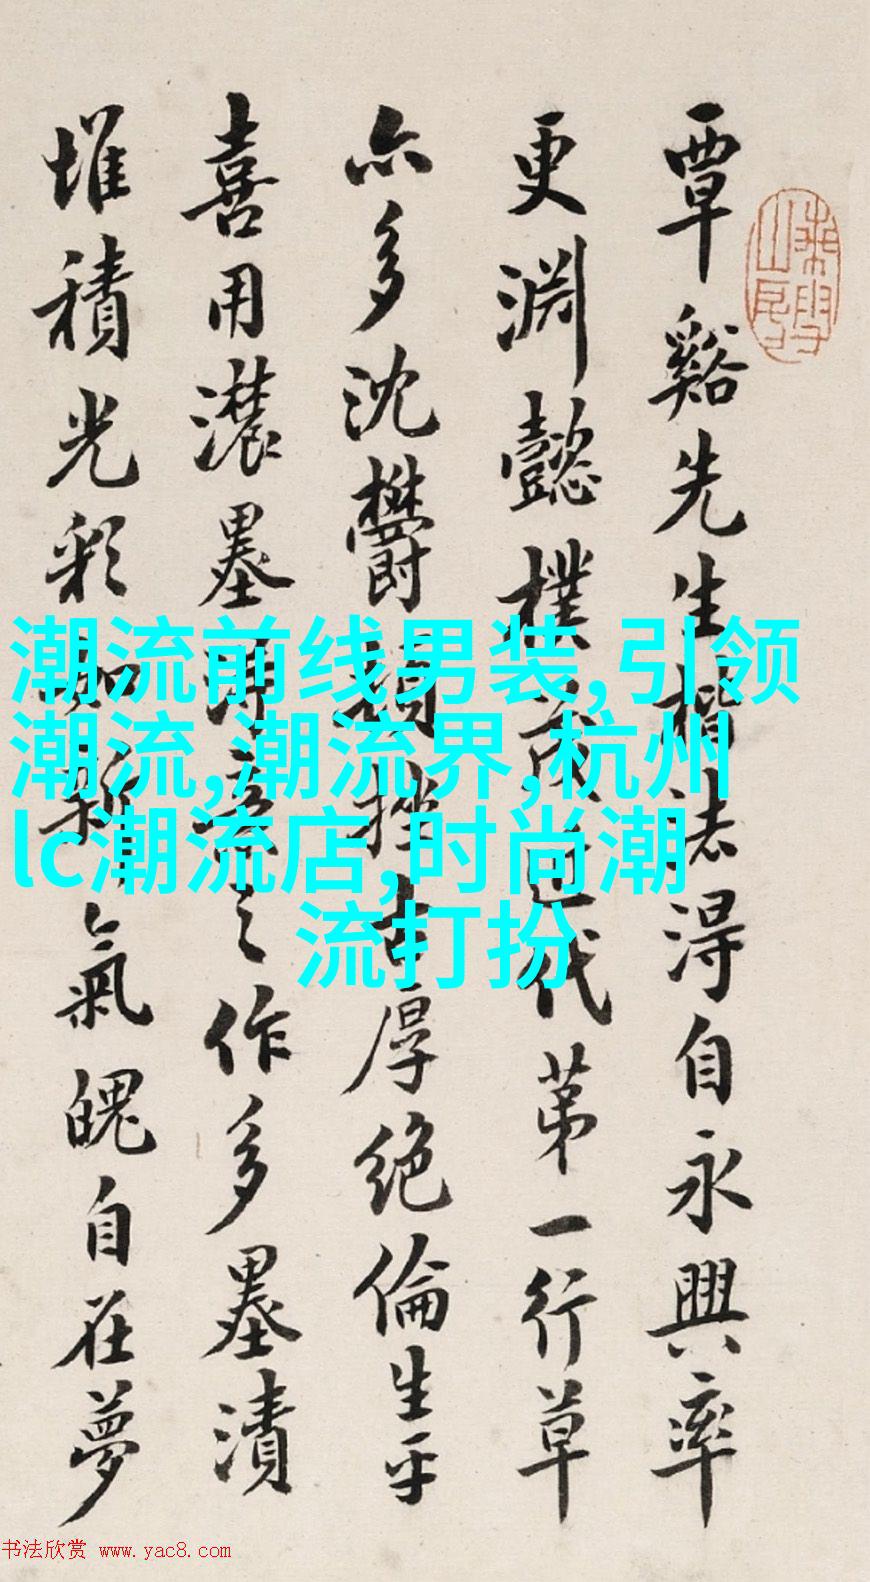 覃谿先生楷法得自永興率
更淵懿樸茂近代苐一行草
亦多沈欝頓挫古厚絶倫生平
喜用濃墨淂意之作多墨漬
堆積光彩如新氣魄自在夢
潮流前线男装,引领
潮流,潮流界,杭州
lc潮流店,时尚潮
流打扮
书法欣赏 www.yac8.com